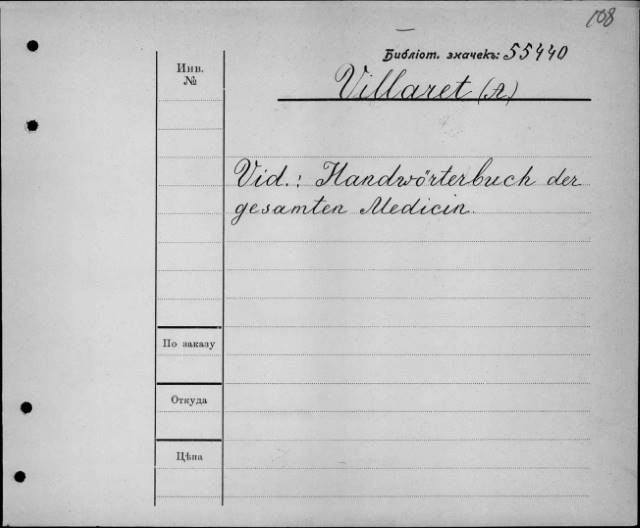 108
Библіот. значекъ: 55440
Инв.
№
Villaret (A.)
Vid.: Handwörterbuch der
gesamten Medicin.
По заказу
Откуда
Цѣна